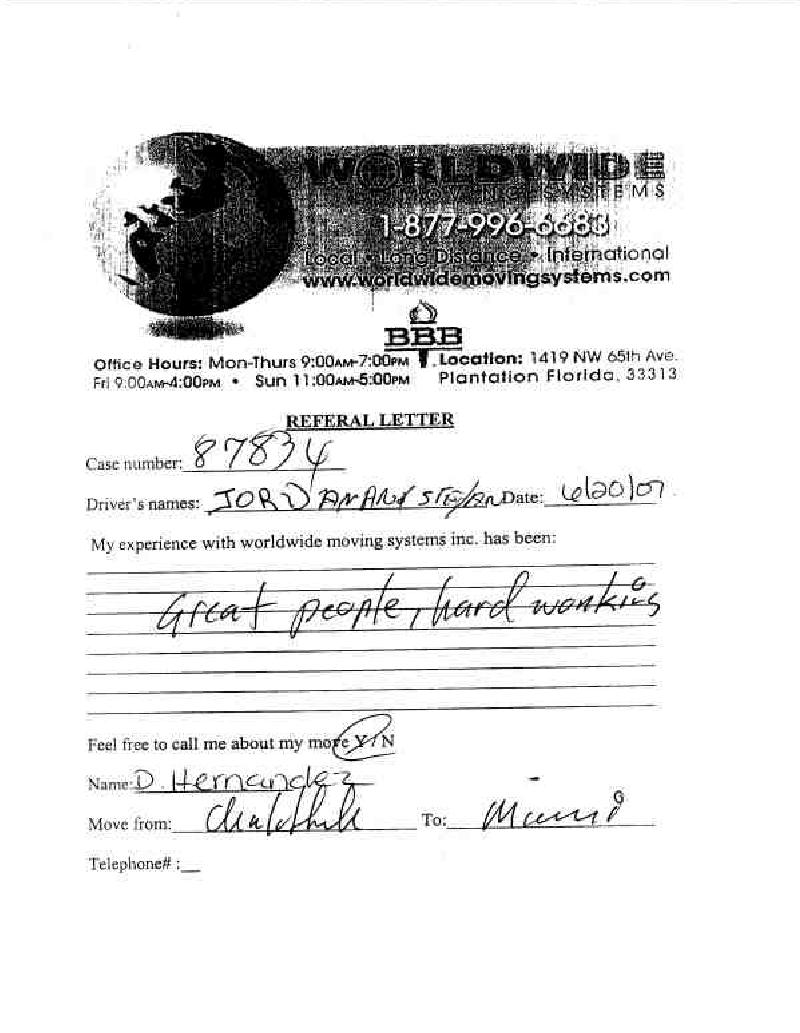 WORLDWIDE
MOVING SYSTEMS
1-877-996-6683
Local • Long Distance • International
www.worldwidemovingsystems.com
BBB
Office Hours: Mon-Thurs 9:00AM-7:00PM
Fri 9:00AM-4:00PM • Sun 11:00AM-5:00PM
Location: 1419 NW 65th Ave.
Plantation Florida, 33313
REFERAL LETTER
Case number: 87834
Driver's names: JORDAN AND STEFAN Date: 6/20/07
My experience with worldwide moving systems inc. has been:
Great people, hard working
Feel free to call me about my move Y/N
Name: D. Hernandez
Move from: To: Miami
Telephone# :